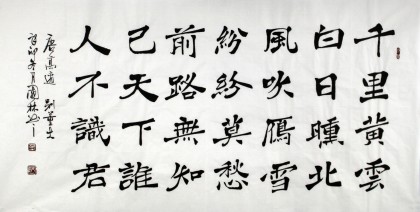 千里黄雲
白日曛北
風吹鴈雪
紛紛莫愁
前路無知
己天下誰
人不識君
唐高適 别董大
癸卯冬月國林